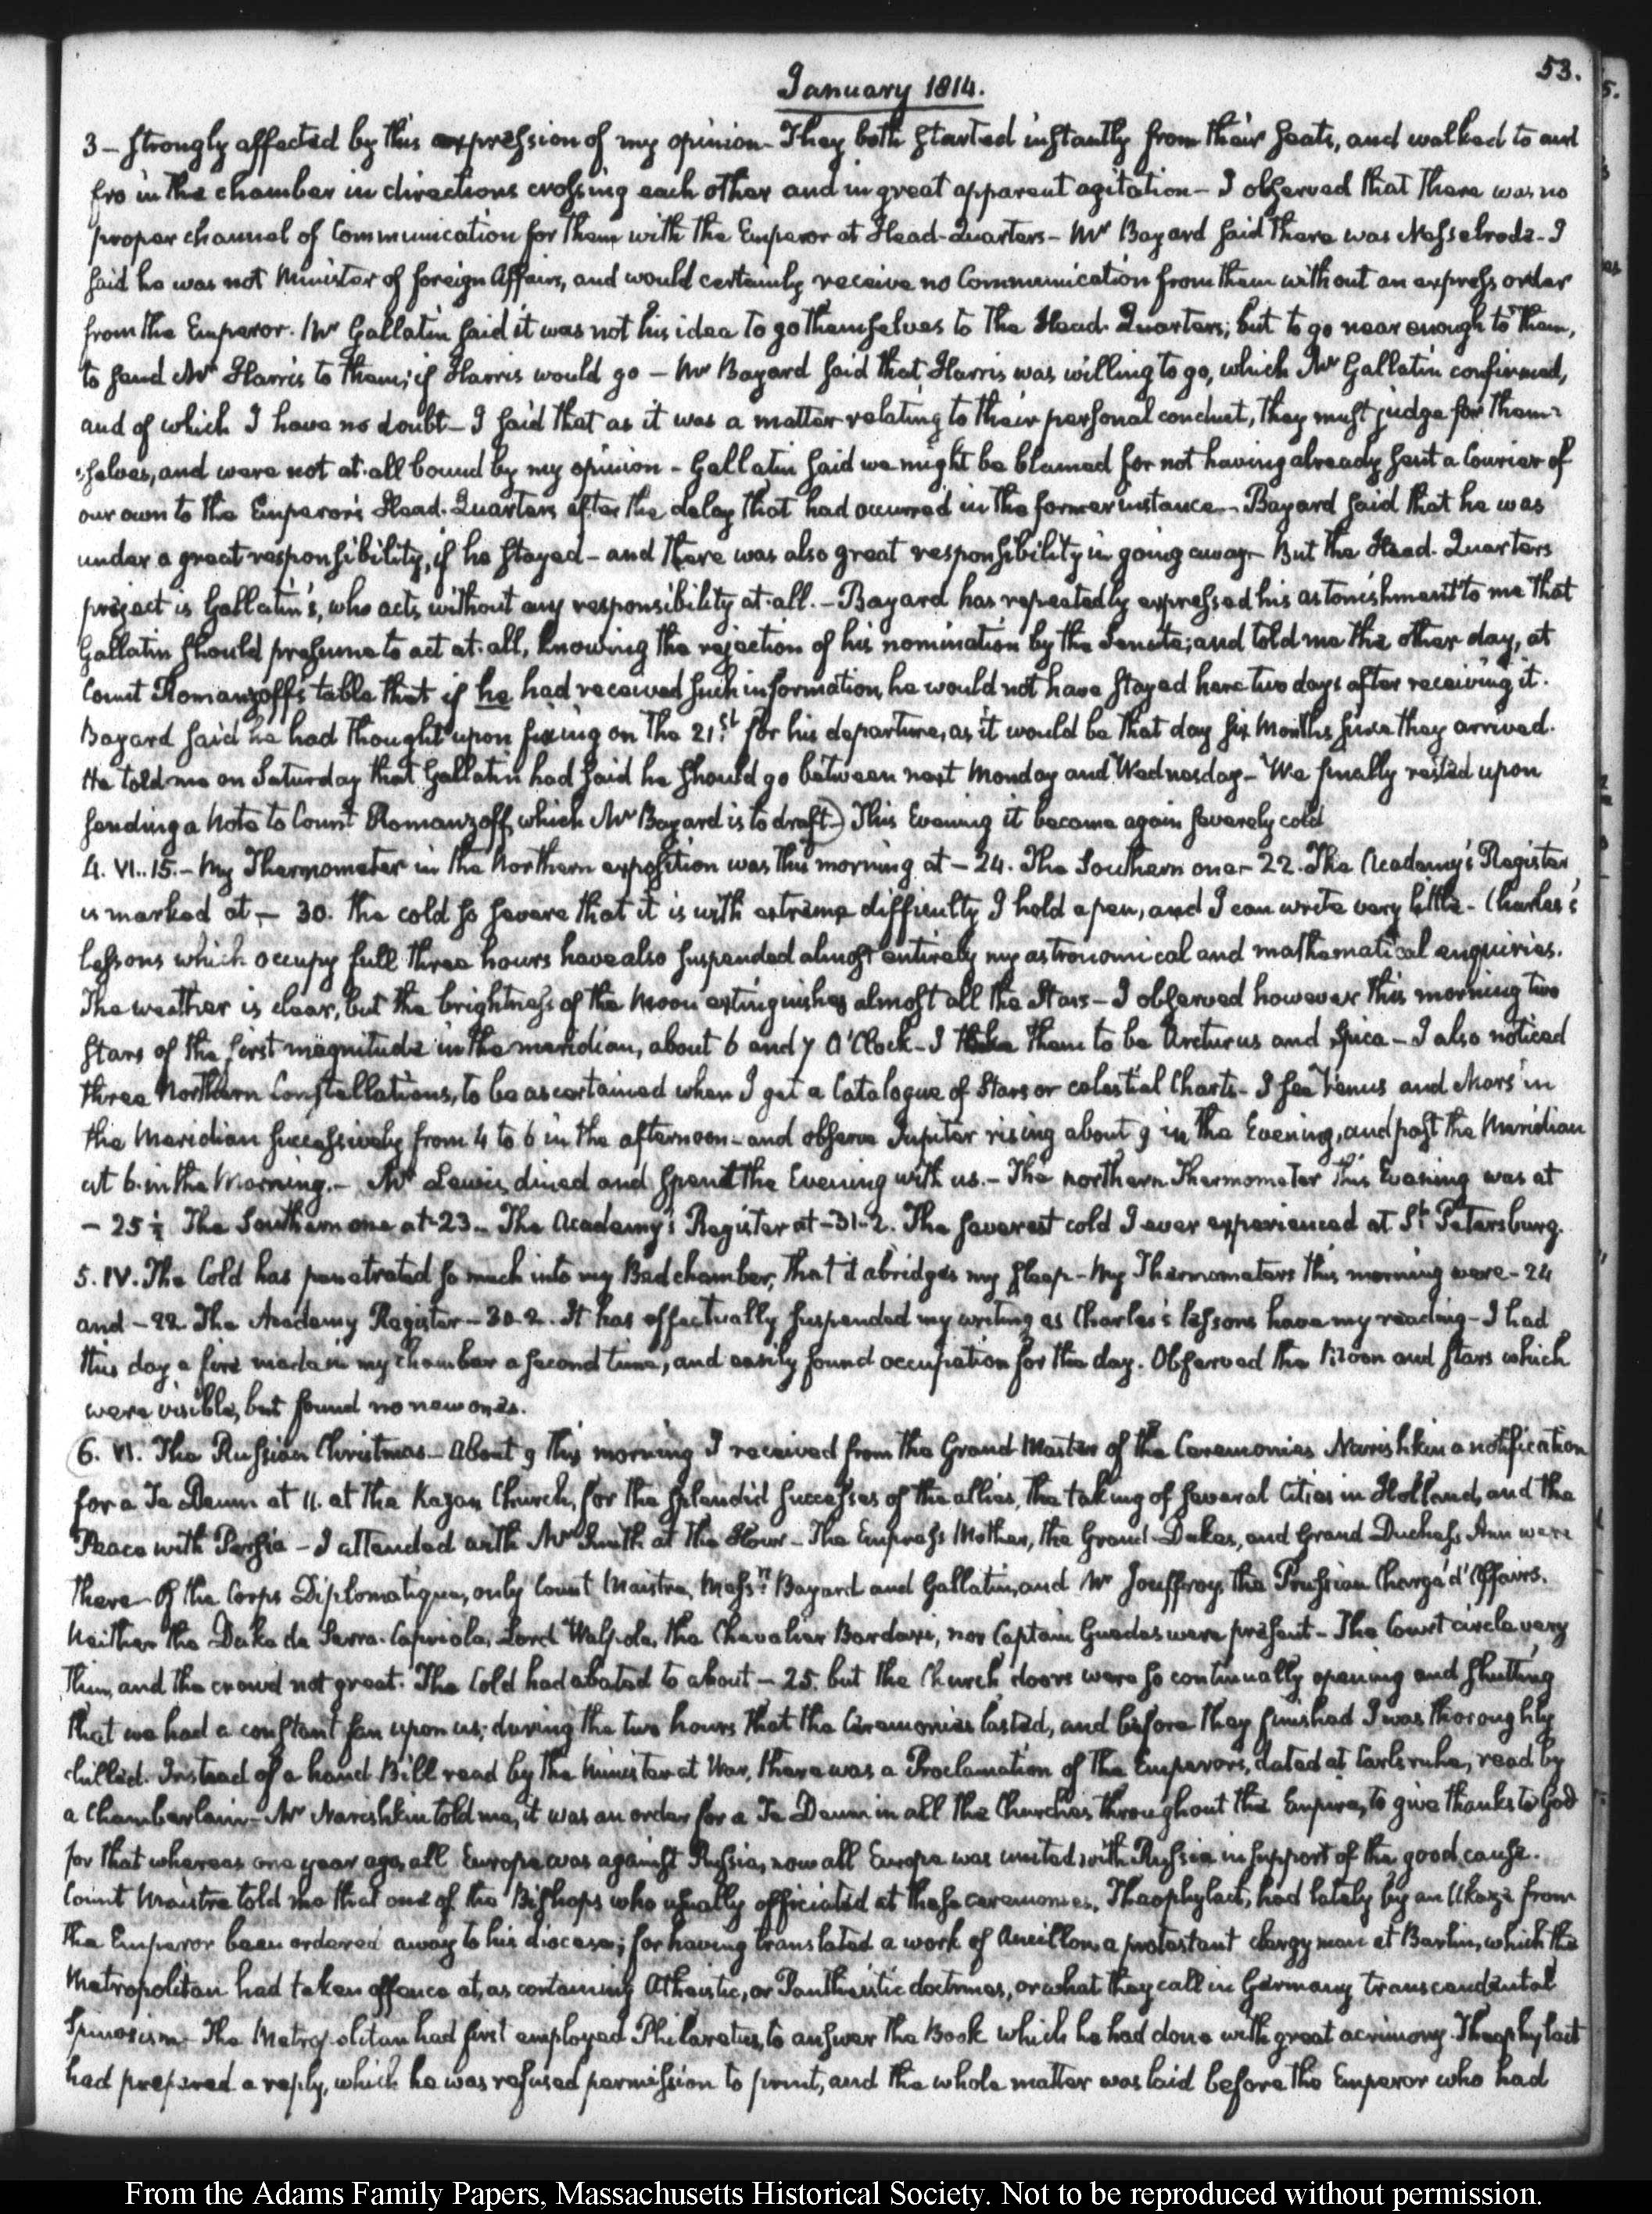 53.
January 1814.
3 - strongly affected by this expression of my opinion - They both started instantly from their seats, and walked to and
fro in the chamber in directions crossing each other and in great apparent agitation - I observed that there was no
proper channel of Communication for them with the Emperor at Head-Quarters - Mr Bayard said there was Nesselrode - I
said he was not Minister of foreign Affairs, and would certainly receive no Communication from them without an express order
from the Emperor. Mr Gallatin said it was not his idea to go themselves to the Head-Quarters; but to go near enough to them,
to send Mr Harris to them; if Harris would go - Mr Bayard said that Harris was willing to go, which Mr Gallatin confirmed,
and of which I have no doubt - I said that as it was a matter relating to their personal conduct, they must judge for them=
=selves, and were not at all bound by my opinion - Gallatin said we might be blamed for not having already sent a Courier of
our own to the Emperor's Head-Quarters after the delay that had occurred in the former instance - Bayard said that he was
under a great responsibility, if he stayed - and there was also great responsibility in going away - But the Head-Quarters
project is Gallatin's, who acts without any responsibility at all. - Bayard has repeatedly expressed his astonishment to me that
Gallatin should presume to act at all, knowing the rejection of his nomination by the Senate; and told me the other day, at
Count Romanzoff's table that if he had received such information, he would not have stayed here two days after receiving it.
Bayard said he had thought upon fixing on the 21st for his departure, as it would be that day six Months since they arrived.
He told me on Saturday that Gallatin had said he should go between next Monday and Wednesday - We finally rested upon
sending a Note to Count Romanzoff, which Mr Bayard is to draft) This Evening it became again severely cold
4. VI..15. - My Thermometer in the Northern exposition was this morning at - 24. The Southern one - 22. The Academy's Register
is marked at - 30. the cold so severe that it is with extreme difficulty I hold a pen, and I can write very little - Charles's
lessons which occupy full three hours have also suspended almost entirely my astronomical and mathematical enquiries.
The weather is clear, but the brightness of the Moon extinguishes almost all the Stars - I observed however this morning two
stars of the first magnitude in the meridian, about 6 and 7 O'Clock - I take them to be Arcturus and Spica - I also noticed
three Northern Constellations, to be ascertained when I get a Catalogue of Stars or celestial Charts - I see Venus and Mars in
the Meridian successively from 4 to 6 in the afternoon - and observe Jupiter rising about 9 in the Evening, and past the Meridian
at 6 in the Morning. - Mr Lewis dined and spent the Evening with us. - The northern Thermometer this Evening was at
- 25½ The Southern one at - 23 - The Academy's Register at - 31-2. The severest cold I ever experienced at St Petersburg.
5. IV. The Cold has penetrated so much into my Bed chamber, that it abridges my sleep - My Thermometers this morning were - 24
and - 22. The Academy Register - 30-2. It has effectually suspended my writing as Charles's lessons have my reading - I had
this day a fire made in my chamber a second time, and easily found occupation for the day. Observed the Moon and stars which
were visible, but found no new ones.
(6. VI. The Russian Christmas - About 9 this morning I received from the Grand Master of the Ceremonies Narishkin a notification
for a Te Deum at 11. at the Kazan Church, for the splendid successes of the allies, the taking of several Cities in Holland, and the
Peace with Persia - I attended with Mr Smith at the Hour - The Empress Mother, the Grand-Dukes, and Grand Duchess Ann were
there - Of the Corps Diplomatique, only Count Maistre, Messrs Bayard and Gallatin, and Mr Jouffroy, the Prussian Chargé d'Affairs.
Neither the Duke de Serra-Capriola, Lord Walpole, the Chevalier Bardaxi, nor Captain Guedes were present - The Court circle very
thin, and the crowd not great. The Cold had abated to about - 25. but the Church doors were so continually opening and shutting
that we had a constant fan upon us; during the two hours that the Ceremonies lasted, and before they finished I was thoroughly
chilled. Instead of a hand-Bill read by the Minister at War, there was a Proclamation of the Emperors, dated at Carlsruhe, read by
a Chamberlain - Mr Narishkin told me, it was an order for a Te Deum in all the Churches throughout the Empire, to give thanks to God
for that whereas one year ago, all Europe was against Russia, now all Europe was united with Russia in support of the good cause.
Count Maistre told me that one of the Bishops who usually officiated at these ceremonies, Theophylact, had lately by an Ukaze from
the Emperor been ordered away to his diocese; for having translated a work of Ancillon, a protestant clergyman at Berlin, which the
Metropolitan had taken offence at, as containing Atheistic, or Pantheistic doctrines, or what they call in Germany transcendental
Spinosism - The Metropolitan had first employed Philaretus, to answer the Book which he had done with great acrimony. Theophylact
had prepared a reply, which he was refused permission to print, and the whole matter was laid before the Emperor who had
From the Adams Family Papers, Massachusetts Historical Society. Not to be reproduced without permission.